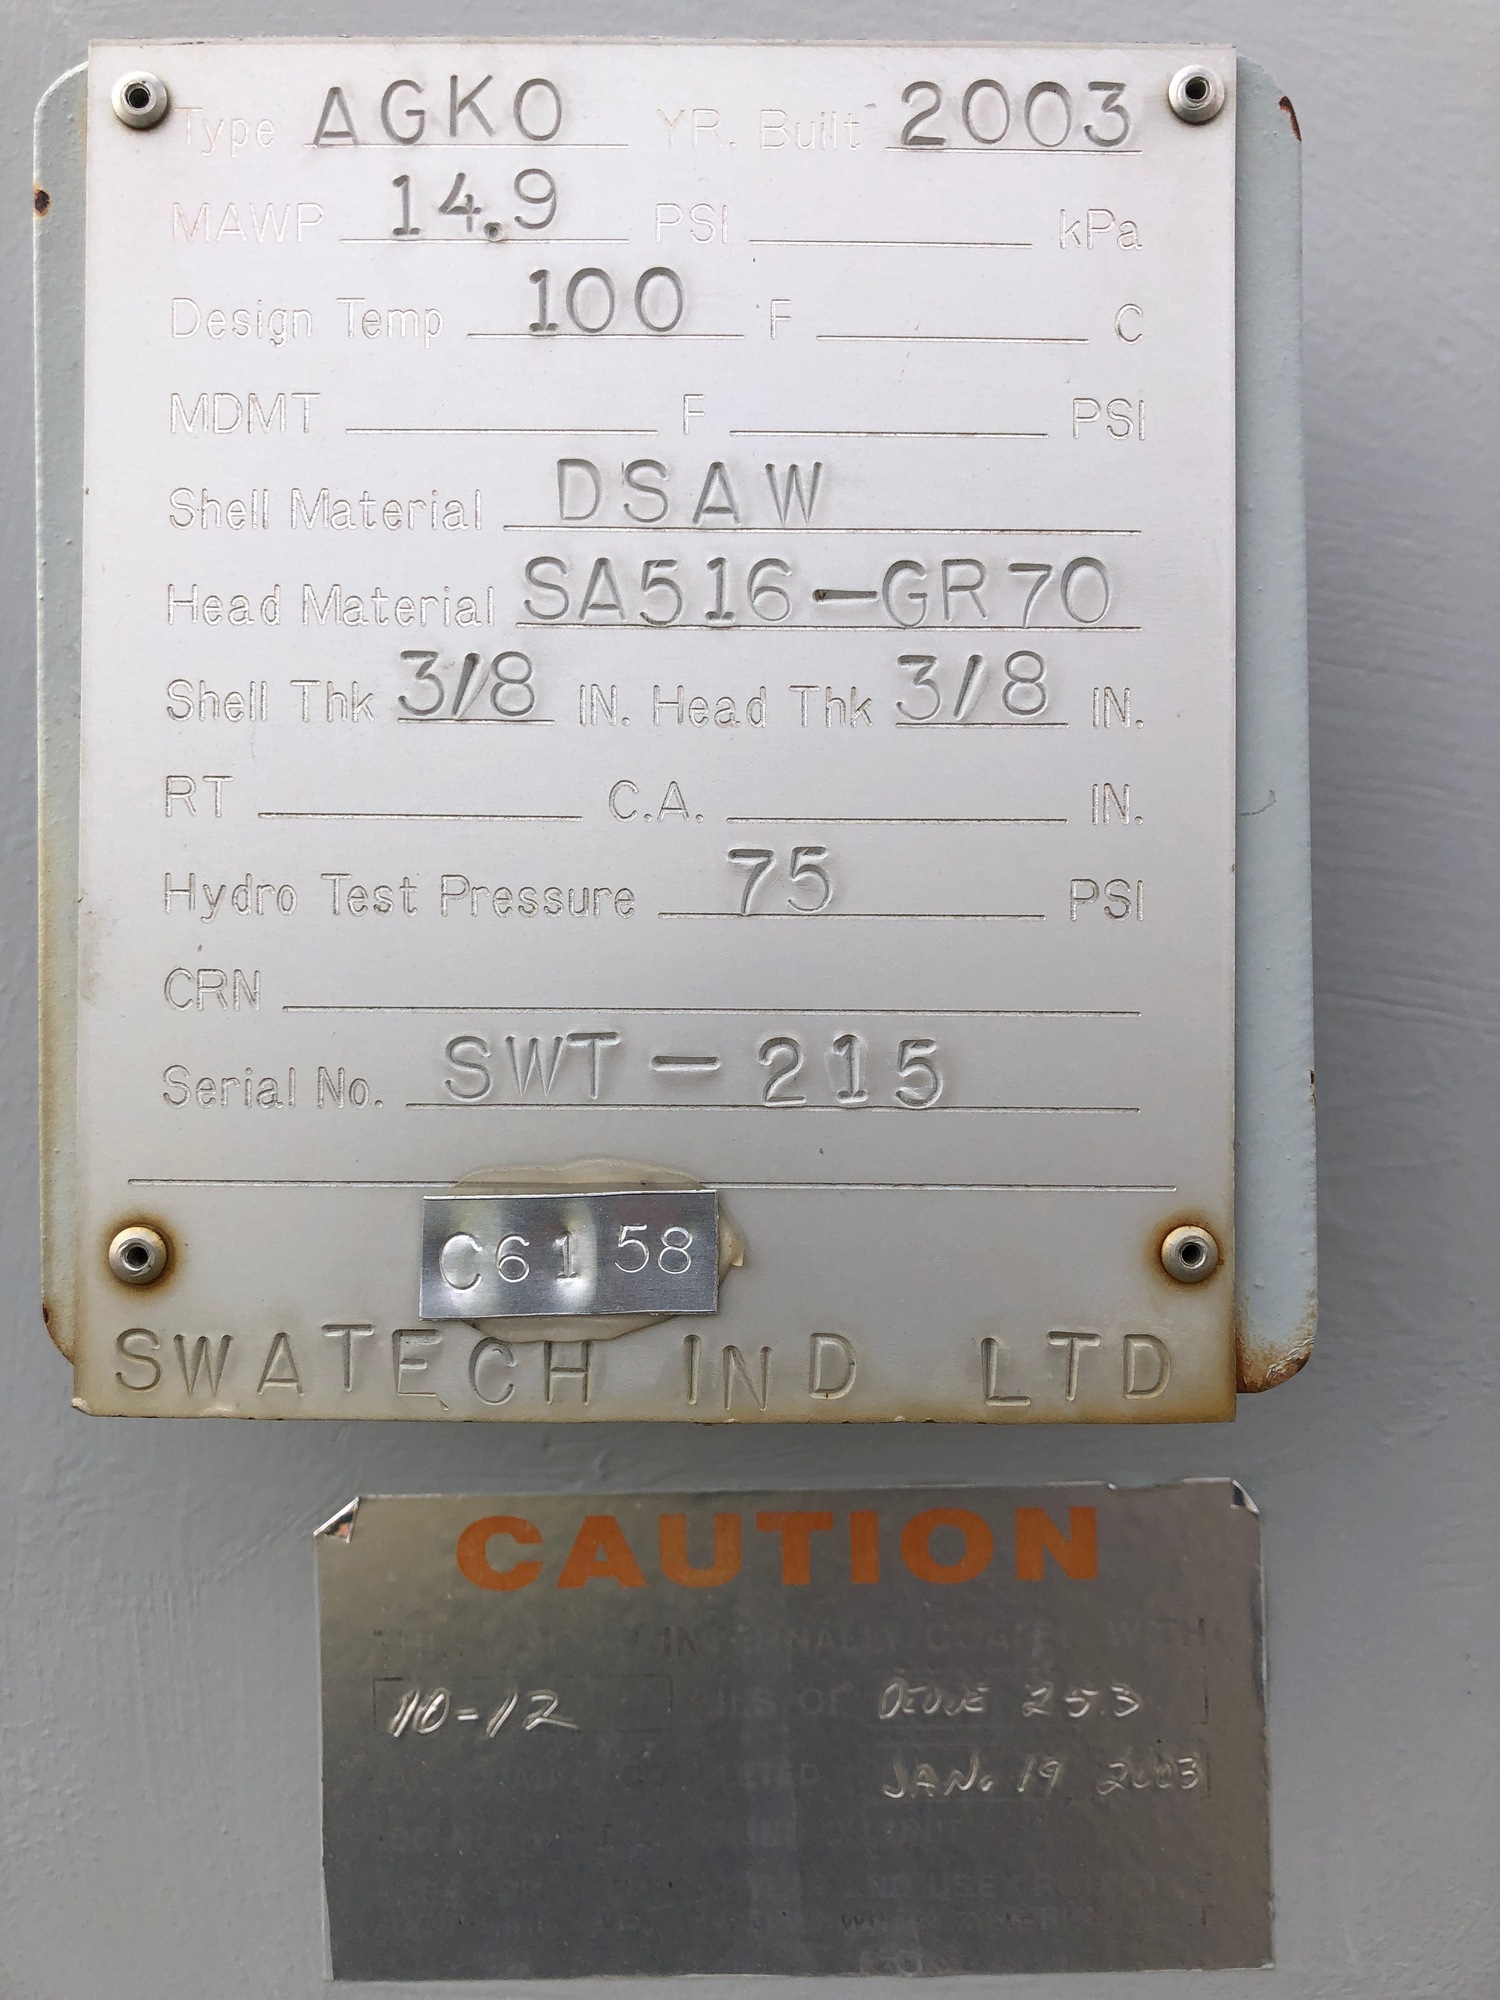 Type AGKO YR. Built 2003
MAWP 14.9 PSI kPa
Design Temp 100 F C
MDMT F PSI
Shell Material DSAW
Head Material SA516-GR70
Shell Thk 3/8 IN. Head Thk 3/8 IN.
RT C.A. IN.
Hydro Test Pressure 75 PSI
CRN
Serial No. SWT-215
C6158
SWATECH IND LTD
CAUTION
INTERNALLY COATED WITH
10-12 MILS OF DEVOE 253
COMPLETED JAN. 19 2003